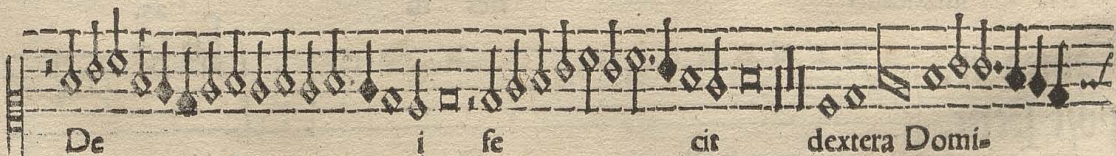 De i fe cit dextera Domi-